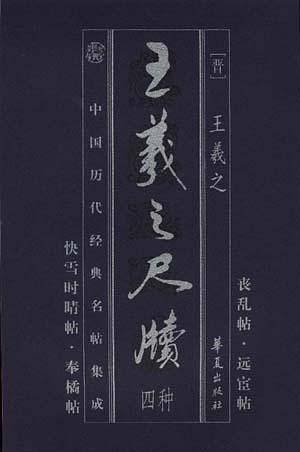 [晋]
王羲之
丧乱帖·远宦帖
王羲之尺牍
四种
华夏出版社
中国历代经典名帖集成
快雪时晴帖·奉橘帖